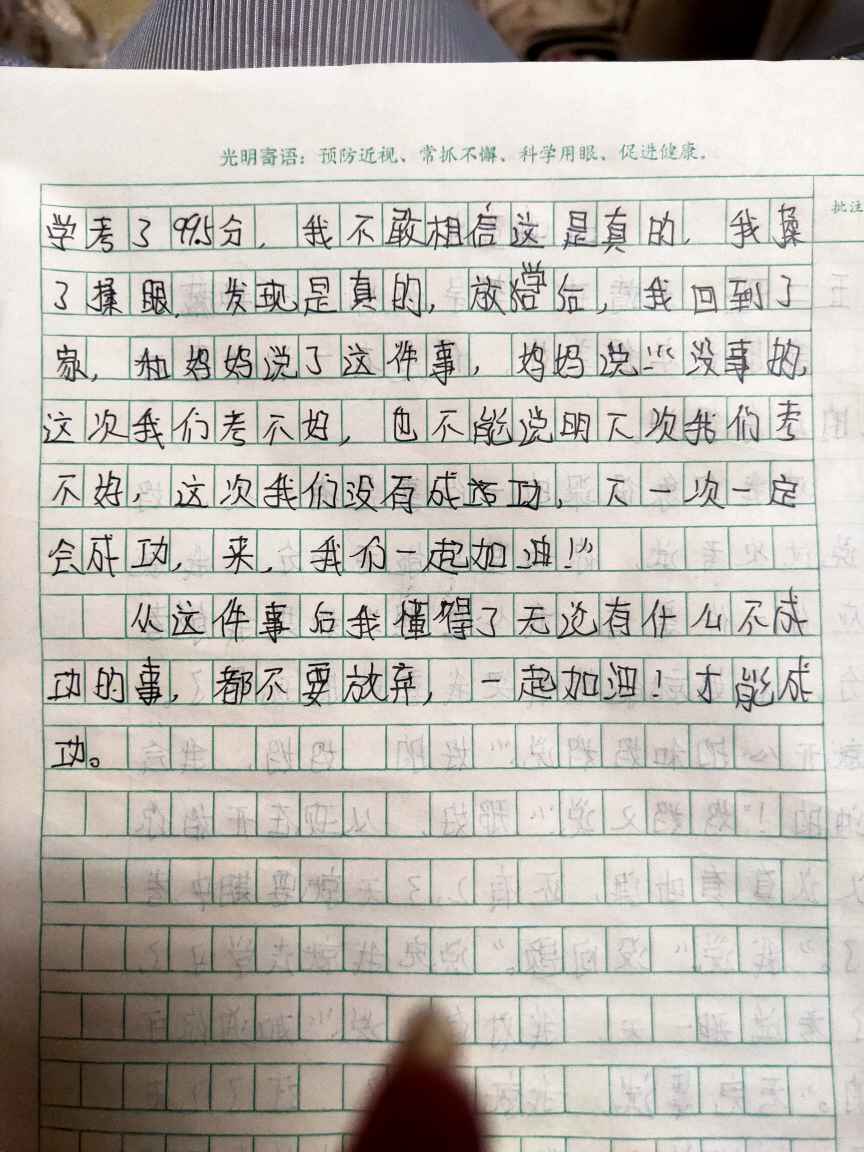 光明寄语：预防近视、常抓不懈、科学用眼、促进健康。
批注
学考了99.5分，我不敢相信这是真的，我揉
了揉眼，发现是真的，放学后，我回到了
家，和妈妈说了这件事，妈妈说：“没事的，
这次我们考不好，也不能说明下次我们考
不好，这次我们没有成功，下一次一定
会成功，来，我们一起加油！”
从这件事后我懂得了无论有什么不成
功的事，都不要放弃，一起加油！才能成
功。